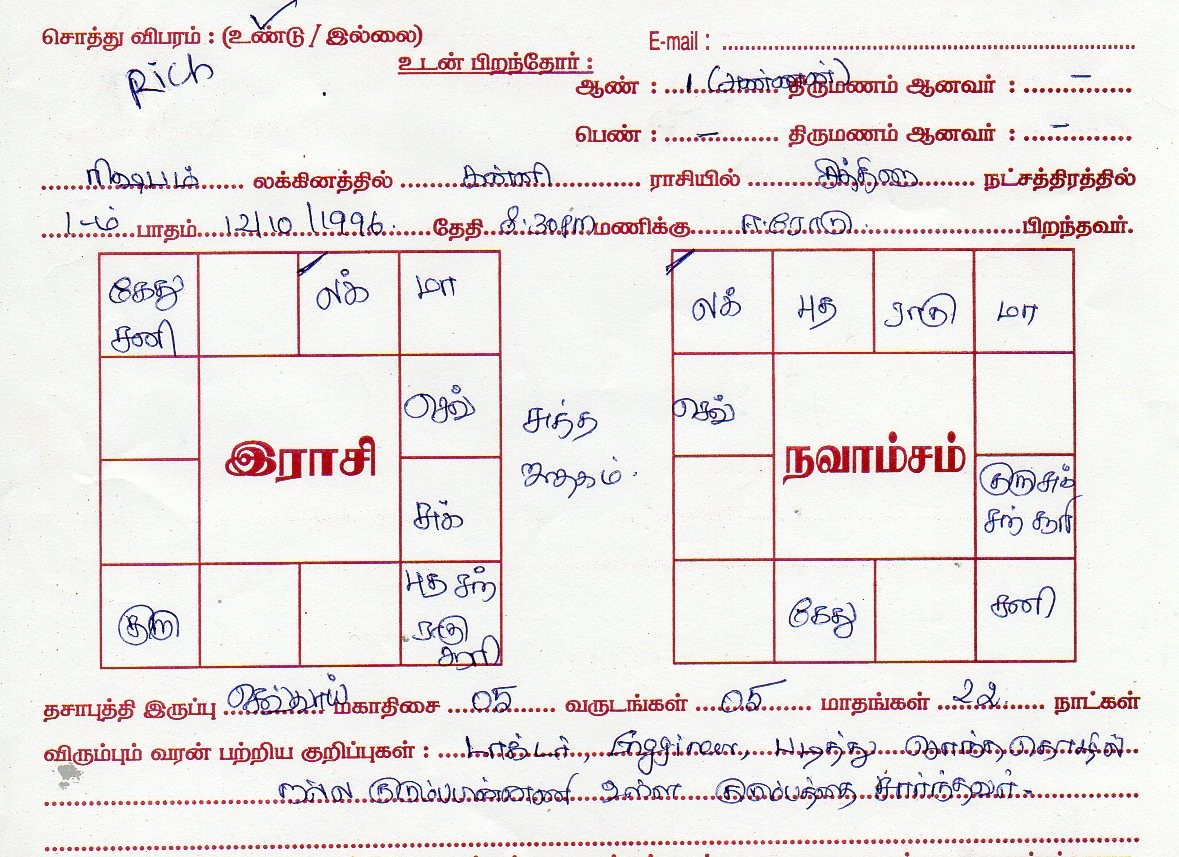 சொத்து விபரம் : (உண்டு / இல்லை)
E-mail :
Rich
உடன் பிறந்தோர் :
ஆண் : 1 (அண்ணன்) திருமணம் ஆனவர் : –
பெண் : – திருமணம் ஆனவர் : –
ரிஷபம் லக்கினத்தில் கன்னி ராசியில் சித்திரை நட்சத்திரத்தில்
1-ம் பாதம் 12/10/1996 தேதி 8:30pm மணிக்கு ஈரோடு பிறந்தவர்.
கேது சனி
லக்
மா
செவ்
சுக்
குரு
புத சந் ராகு சூரி
இராசி
சுத்த
ஜாதகம்.
லக்
புத
ராகு
மா
செவ்
நவாம்சம்
குரு சுக்
சந் சூரி
கேது
சனி
தசாபுத்தி இருப்பு செவ்வாய் மகாதிசை 05 வருடங்கள் 05 மாதங்கள் 22 நாட்கள்
விரும்பும் வரன் பற்றிய குறிப்புகள் : டாக்டர், படித்து சொந்த தொழில்
நல்ல உள்ள குடும்பத்தை சார்ந்தவர்.